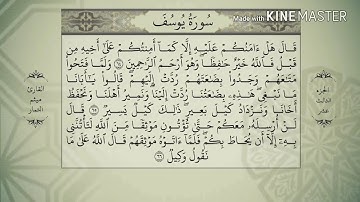 Made with KINEMASTER
سورة يوسف
قَالَ هَلْ ءَامَنُكُمْ عَلَيْهِ إِلَّا كَمَآ أَمِنتُكُمْ عَلَىٰٓ أَخِيهِ مِن
قَبْلُ فَٱللَّهُ خَيْرٌ حَٰفِظًا وَهُوَ أَرْحَمُ ٱلرَّٰحِمِينَ ٦٤ وَلَمَّا فَتَحُوا۟
مَتَٰعَهُمْ وَجَدُوا۟ بِضَٰعَتَهُمْ رُدَّتْ إِلَيْهِمْ قَالُوا۟ يَٰٓأَبَانَا
مَا نَبْغِى هَٰذِهِۦ بِضَٰعَتُنَا رُدَّتْ إِلَيْنَا وَنَمِيرُ أَهْلَنَا وَنَحْفَظُ
أَخَانَا وَنَزْدَادُ كَيْلَ بَعِيرٍ ذَٰلِكَ كَيْلٌ يَسِيرٌ ٦٥ قَالَ
لَنْ أُرْسِلَهُۥ مَعَكُمْ حَتَّىٰ تُؤْتُونِ مَوْثِقًا مِّنَ ٱللَّهِ لَتَأْتُنَّنِى
بِهِۦٓ إِلَّآ أَن يُحَاطَ بِكُمْ فَلَمَّآ ءَاتَوْهُ مَوْثِقَهُمْ قَالَ ٱللَّهُ عَلَىٰ مَا
نَقُولُ وَكِيلٌ ٦٦
الجزء
الثالث
عشر
القارئ
ميثم
التمار